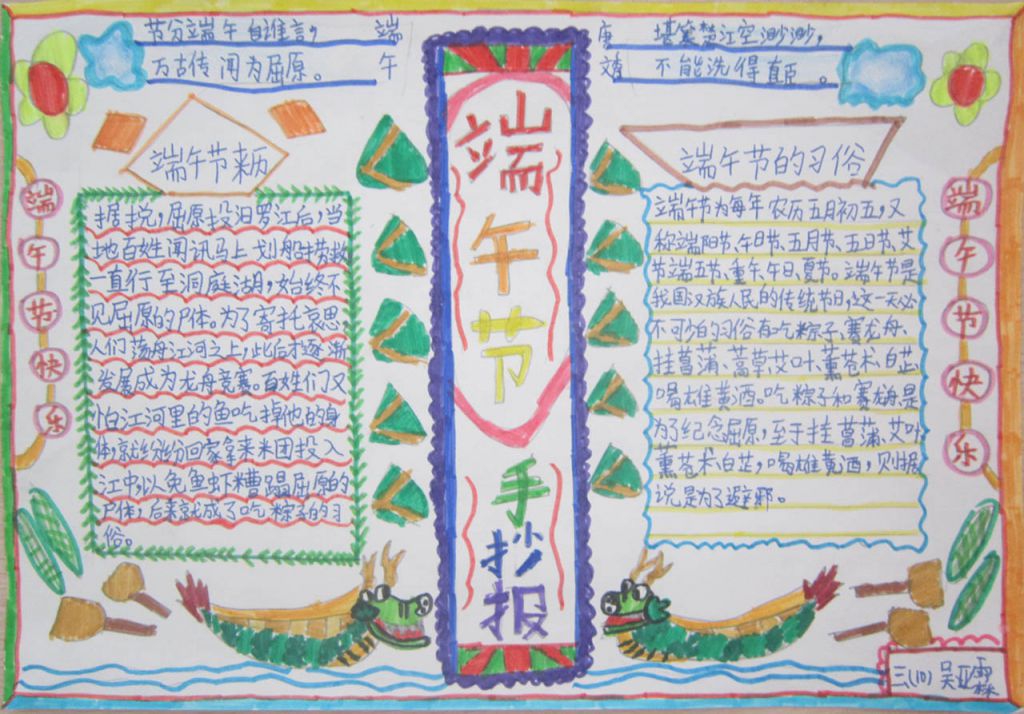 节分端午自谁言，
万古传闻为屈原。
端
午
唐
文
堪笑楚江空渺渺，
不能洗得直臣。
端午节来历
据说，屈原投汨罗江后，当
地百姓闻讯马上划船捞救
一直行至洞庭湖，始终不
见屈原的尸体。为了寄托哀思
人们荡舟江河之上，此后才逐渐
发展成为龙舟竞赛。百姓们又
怕江河里的鱼吃掉他的身
体，就纷纷回家拿来米团投入
江中，以免鱼虾糟蹋屈原的
尸体，后来就成了吃粽子的习
俗。
端午节快乐
端午节
手抄报
端午节的习俗
端午节为每年农历五月初五，又
称端阳节、午日节、五月节、五日节、艾
节、端五节、重午、午日、夏节。端午节是
我国汉族人民的传统节日，这一天必
不可少的习俗有吃粽子、赛龙舟、
挂菖蒲、蒿草、艾叶、薰苍术、白芷、
喝雄黄酒。吃粽子和赛龙舟，是
为了纪念屈原，至于挂菖蒲、艾叶
薰苍术、白芷，喝雄黄酒，则据
说是为了避邪。
端午节快乐
三(10) 吴亚霖